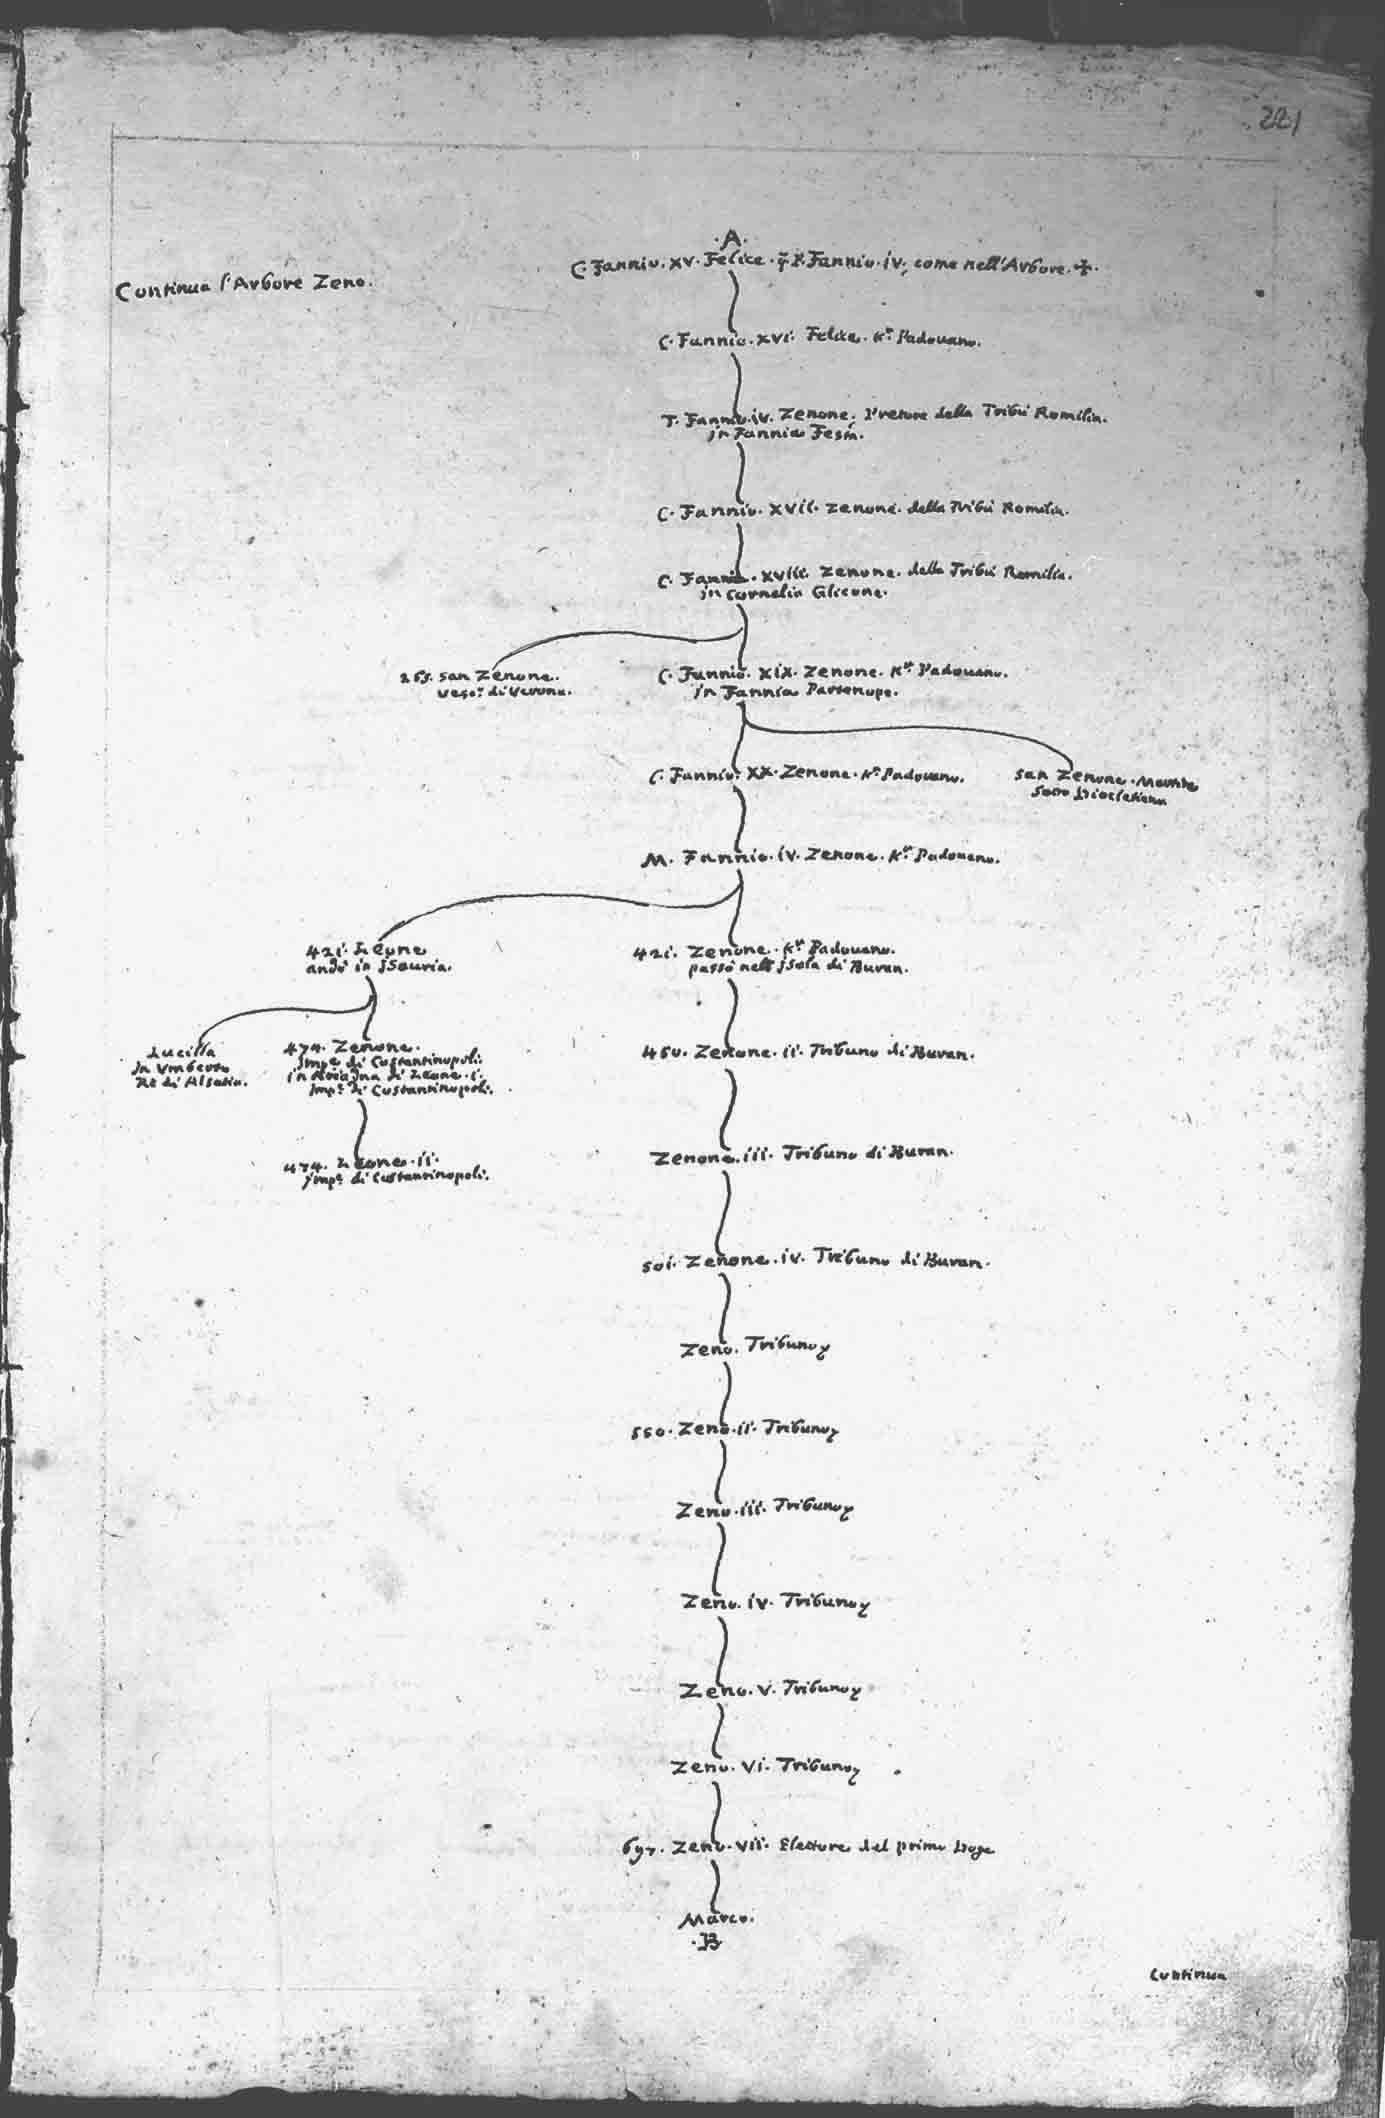 221
.A.
C. Fannio. XV. Felice. q. P. Fannio. iv, come nell'Arbore. ✠.
Continua l'Arbore Zeno.
C. Fannio. XVI. Felice. Kr. Padouano.
T. Fannio. iv. Zenone. Pretore della Tribù Romilia.
in Fannia
C. Fannio. XVII. Zenone. della Tribù Romilia.
C. Fannio. XVIII. Zenone. della Tribù Romilia.
in Cornelia Glicone.
265. San Zenone.
Vesc.o di Verona.
C. Fannio. XIX. Zenone. Kr. Padouano.
in Fannia Partenope.
C. Fannio. XX. Zenone. Kr. Padouano.
San Zenone. Martire
sotto Diocletiano
M. Fannio. iv. Zenone. Kr. Padouano.
421. Leone
andò in jSauria.
421. Zenone. Kr. Padouano.
passò nell' jSola di Buran.
Lucilla
in Vmberto
Rè di Alsatia.
474. Zenone.
Imp.e di Costantinopoli.
in Ariagna di Leone. i.
Imp.e di Costantinopoli.
450. Zenone. ii. Tribuno di Buran.
Zenone. iii. Tribuno di Buran.
474. Leone. ii.
jmp.e di Costantinopoli.
501. Zenone. iv. Tribuno di Buran.
Zeno. Tribuno
550. Zeno. ii. Tribuno
Zeno. iii. Tribuno
Zeno. iv. Tribuno
Zeno. V. Tribuno
Zeno. Vi. Tribuno
697. Zeno. Vii. Elettore del primo Doge
Marco.
.B.
Continua